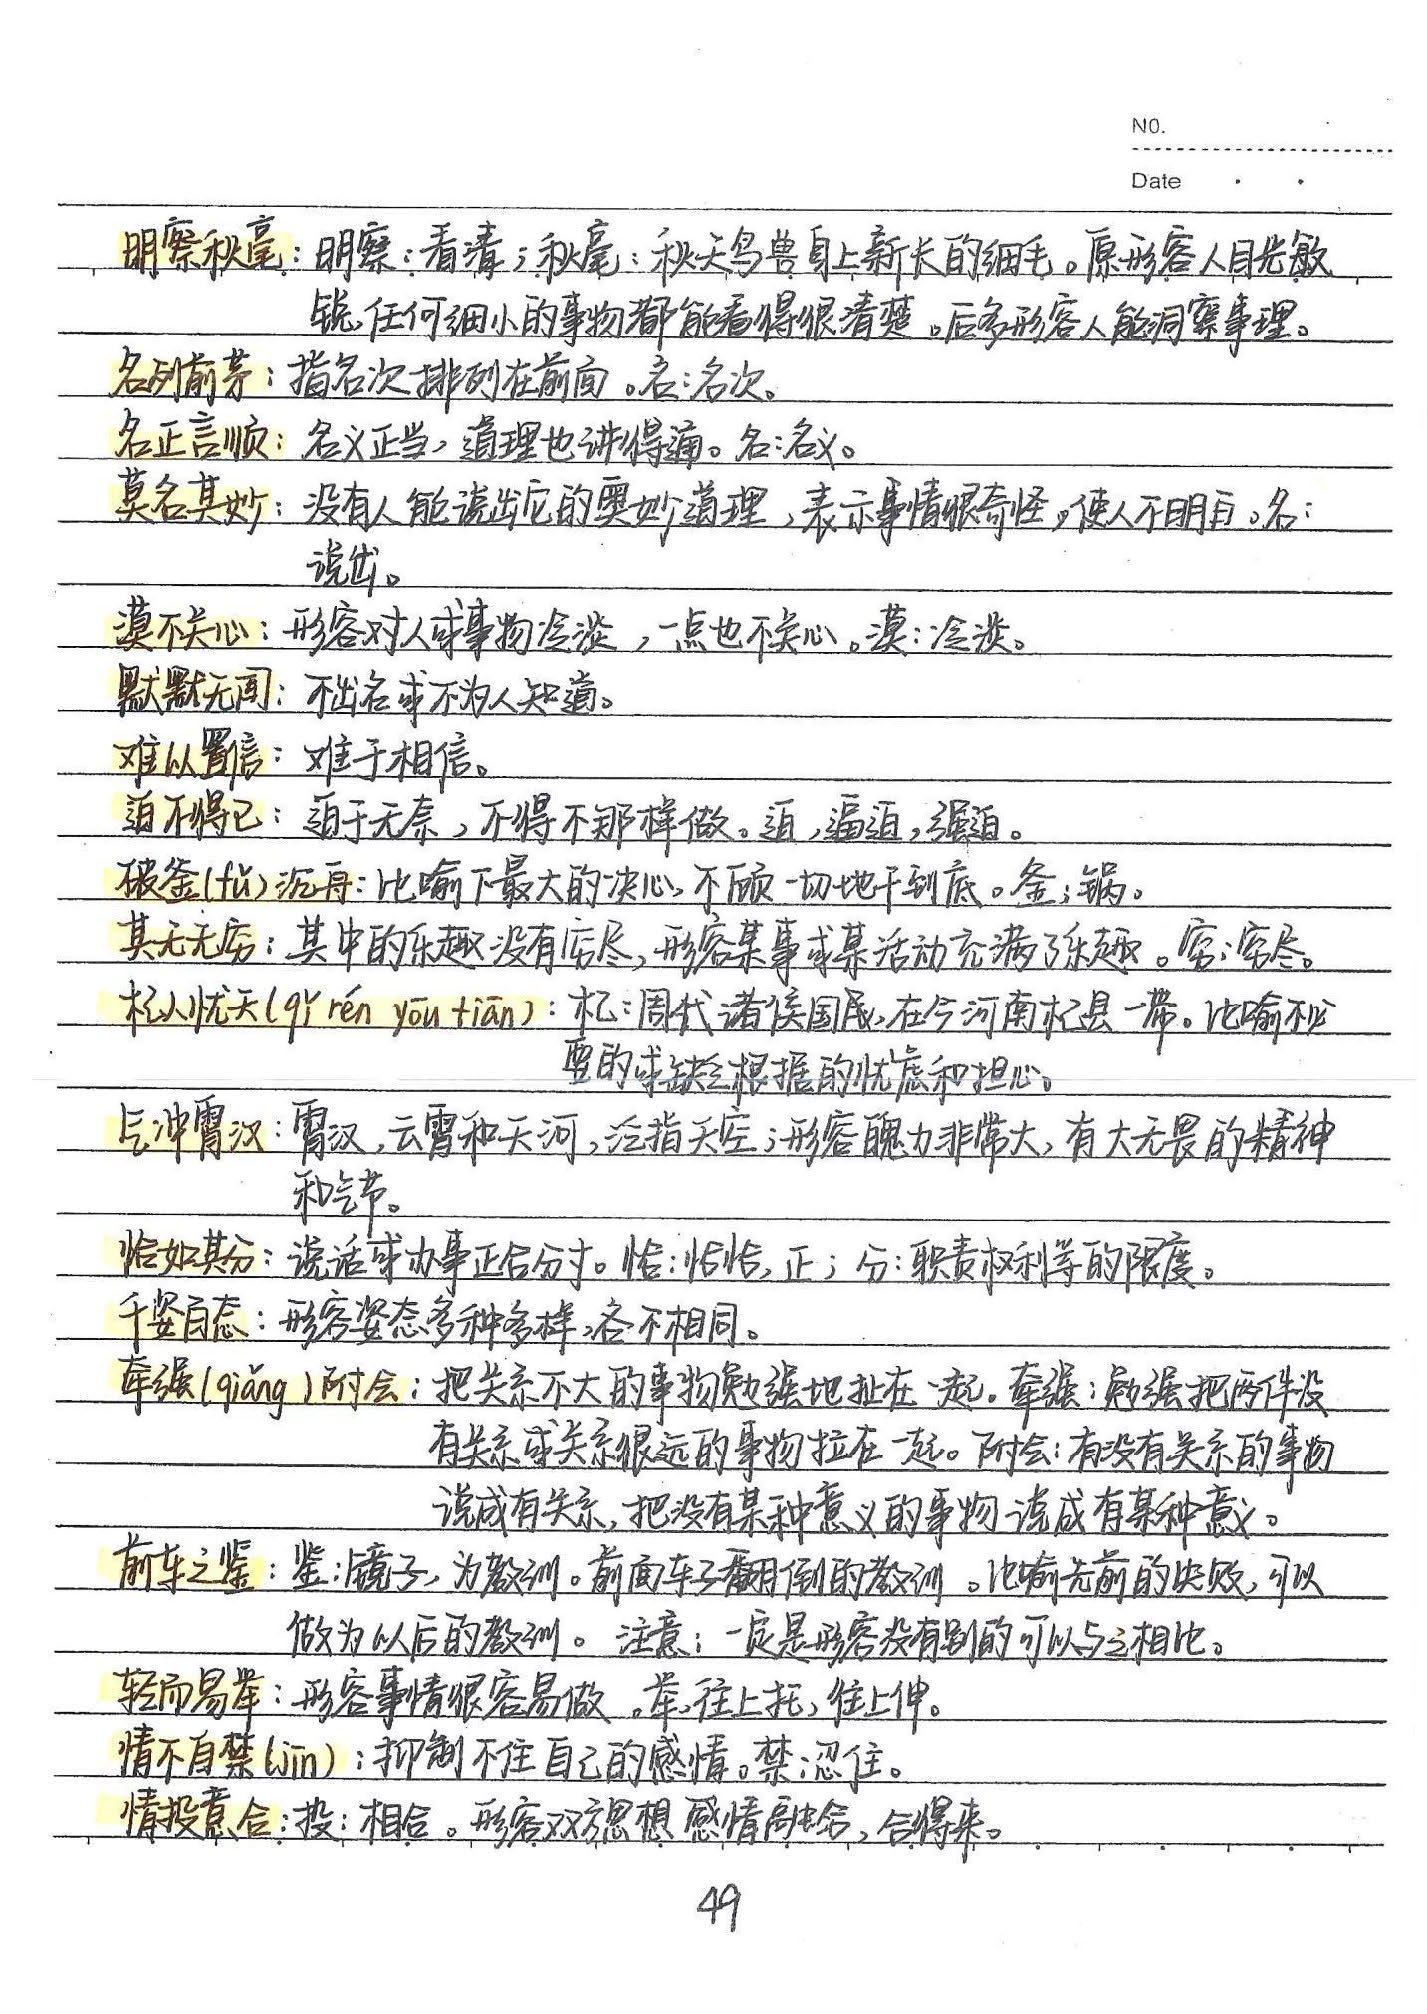 NO.
Date
明察秋毫：明察：看清；秋毫：秋天鸟兽身上新长的细毛。原形容人目光敏
锐，任何细小的事物都能看得很清楚。后多形容人能洞察事理。
名列前茅：指名次排列在前面。名：名次。
名正言顺：名义正当，道理也讲得通。名：名义。
莫名其妙：没有人能说出它的奥妙道理，表示事情很奇怪，使人不明白。名：
说出。
漠不关心：形容对人或事物冷淡，一点也不关心。漠：冷淡。
默默无闻：不出名或不为人知道。
难以置信：难于相信。
迫不得已：迫于无奈，不得不那样做。迫，逼迫，强迫。
破釜(fǔ)沉舟：比喻下最大的决心，不顾一切地干到底。釜：锅。
其无无穷：其中的乐趣没有穷尽，形容某事或某活动充满了乐趣。穷：穷尽。
杞人忧天(qǐ rén yōu tiān)：杞：周代诸侯国民，在今河南杞县一带。比喻不必
要的或缺乏根据的忧虑和担心。
气冲霄汉：霄汉，云霄和天河，泛指天空；形容魄力非常大，有大无畏的精神
和气节。
恰如其分：说话或办事正合分寸。恰：恰恰，正；分：职责权利等的限度。
千姿百态：形容姿态多种多样，各不相同。
牵强(qiǎng)附会：把关系不大的事物勉强地扯在一起。牵强：勉强把两件没
有关系或关系很远的事物拉在一起。附会：有没有关系的事物
说成有关系，把没有某种意义的事物说成有某种意义。
前车之鉴：鉴：镜子，为教训。前面车子翻倒的教训。比喻先前的失败，可以
做为以后的教训。 注意：一定是形容没有别的可以与之相比。
轻而易举：形容事情很容易做。举，往上托，往上伸。
情不自禁(jīn)：抑制不住自己的感情。禁：忍住。
情投意合：投：相合。形容双方思想感情融洽，合得来。
49